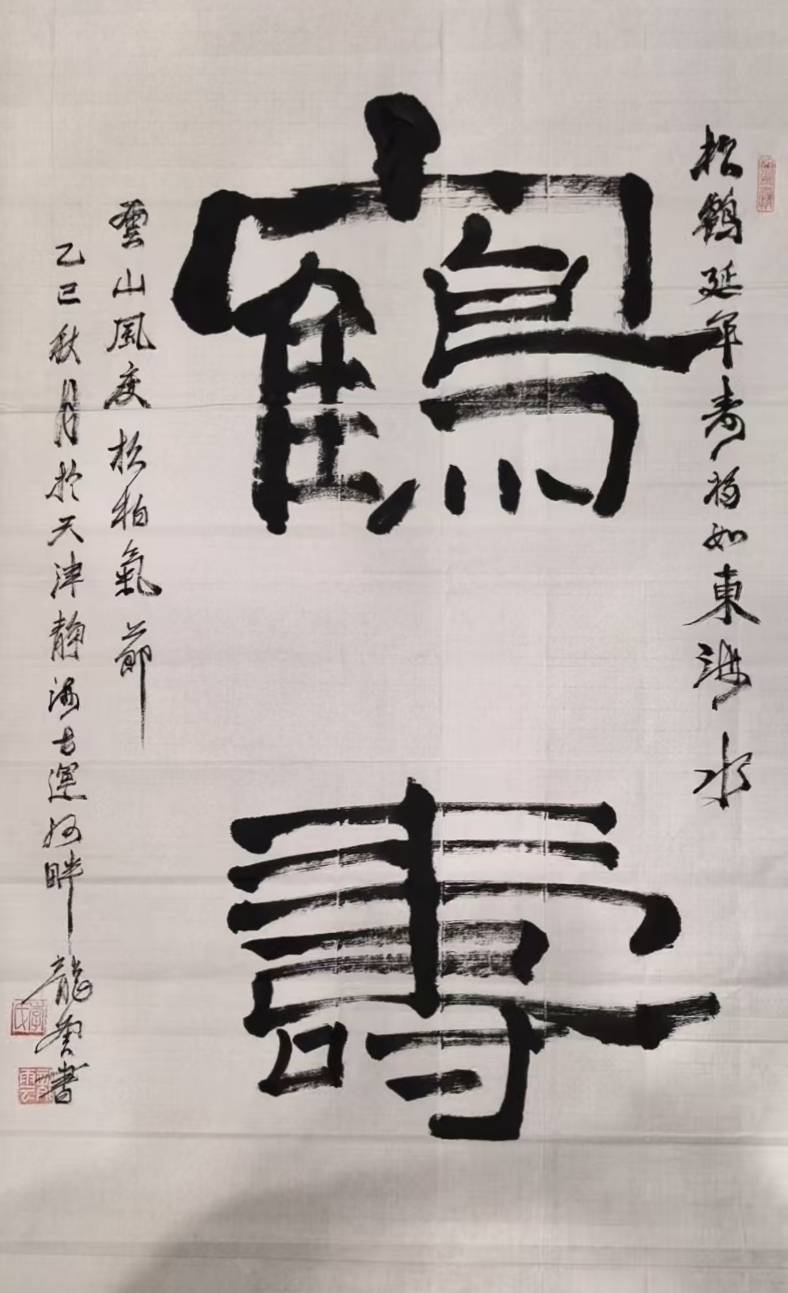 松鶴延年壽福如東海水
鶴壽
雲山風度松柏氣節
乙巳秋月於天津靜海古運河畔
龍 書